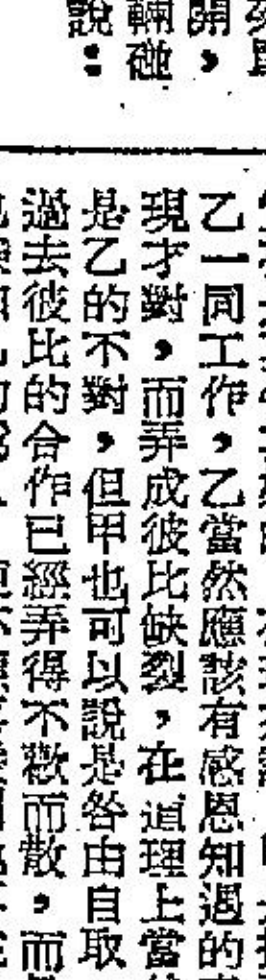 開，
輛碰
說：
乙一同工作，乙當然應該有感恩知遇的
現才對，而弄成彼比缺裂，在道理上當
是乙的不對，但甲也可以說是咎由自取
過去彼比的合作已經弄得不歡而散，而